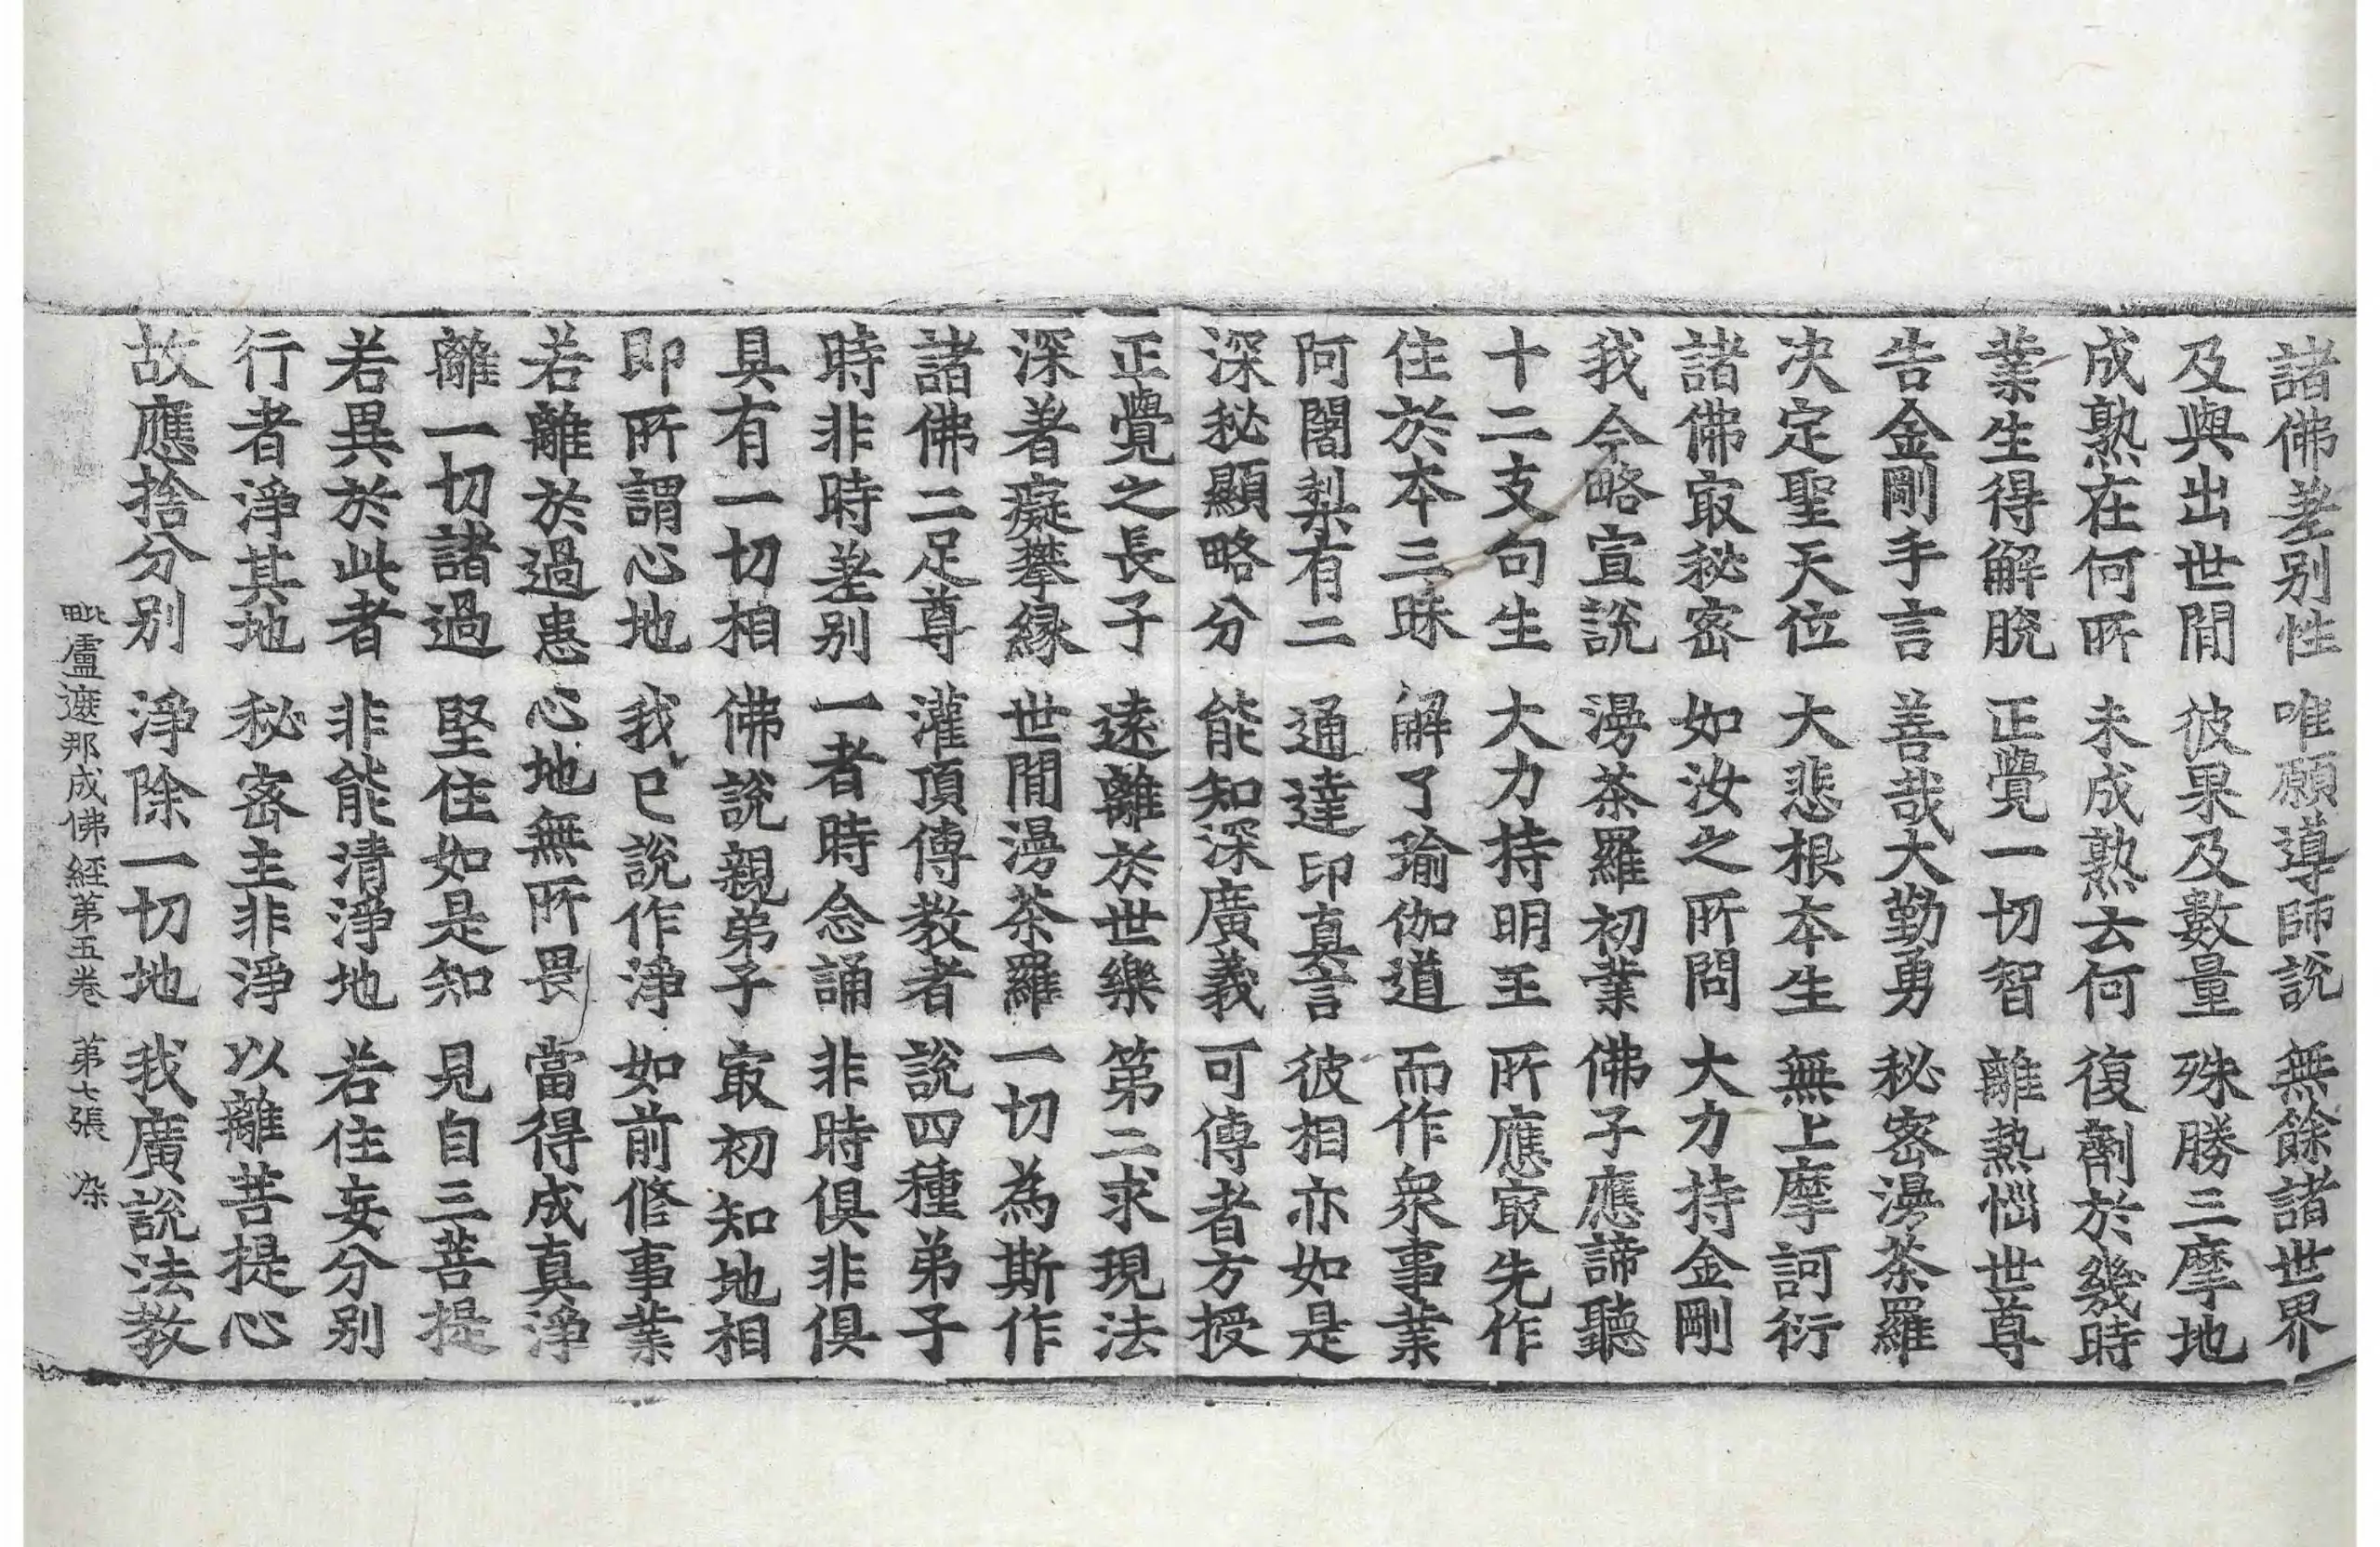 諸佛差别性　唯願導師說　無餘諸世界
及與出世間　彼果及數量　殊勝三摩地
成熟在何所　未成熟云何　復劑於幾時
業生得解脫　正覺一切智　離熱惱世尊
告金剛手言　善哉大勤勇　秘密漫茶羅
决定聖天位　大悲根本生　無上摩訶衍
諸佛㝡秘密　如汝之所問　大力持金剛
我今略宣說　漫茶羅初業　佛子應諦聽
十二支句生　大力持明王　所應㝡先作
住於本三昧　解了瑜伽道　而作衆事業
阿闍梨有二　通達印真言　彼相亦如是
深秘顯略分　能知深廣義　可傳者方授
正覺之長子　遠離於世樂　第二求現法
深著癡攀緣　世間漫茶羅　一切為斯作
諸佛二足尊　灌頂傳教者　說四種弟子
時非時差别　一者時念誦　非時俱非俱
具有一切相　佛說親弟子　㝡初知地相
即所謂心地　我已說作淨　如前修事業
若離於過患　心地無所畏　當得成真淨
離一切諸過　堅住如是知　見自三菩提
若異於此者　非能清淨地　若住妄分别
行者淨其地　秘密主非淨　以離菩提心
故應捨分别　淨除一切地　我廣說法教
毗盧遮那成佛經第五卷　第七張　染